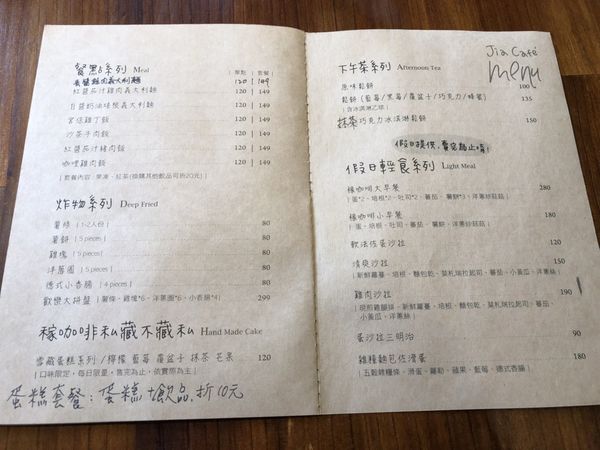 餐點系列 Meal
|單點|套餐|
青醬雞肉義大利麵 120 | 149
紅醬茄汁雞肉義大利麵 120 | 149
白醬奶油培根義大利麵 120 | 149
宮保雞丁飯 120 | 149
沙茶牛肉飯 120 | 149
紅醬茄汁豬肉飯 120 | 149
咖哩雞肉飯 120 | 149
| 套餐內容 果凍、紅茶(換購其他飲品可折20元)
炸物系列 Deep Fried
薯條 | 1-2人份 | 80
薯餅 | 5 pieces | 80
雞塊 | 5 pieces | 80
洋蔥圈 | 5 pieces | 80
德式小香腸 | 4 pieces | 80
歡樂大拼盤 | 薯條、雞塊*6、洋蔥圈*6、小香腸*4 | 299
稼咖啡私藏不藏私 Hand Made Cake
雪藏蛋糕系列 / 檸檬 藍莓 覆盆子 抹茶 芒果 120
| 口味限定，每日限量，售完為止，依實際為主 |
蛋糕套餐：蛋糕+飲品, 折10元
Jia Café
menu
下午茶系列 Afternoon Tea
原味鬆餅 100
鬆餅 (藍莓/黑莓/覆盆子/巧克力/蜂蜜) 135
| 含冰淇淋乙球 |
抹茶巧克力冰淇淋鬆餅 150
假日提供，賣完為止唷!
假日輕食系列 Light Meal
稼咖啡大早餐 280
| 蛋*2、培根*2、吐司*2、蕃茄、薯餅*3、洋蔥絲菇菇 |
稼咖啡小早餐 180
| 蛋、培根、吐司、蕃茄、薯餅、洋蔥絲菇菇 |
歐法佐蛋沙拉 120
清爽沙拉 150
| 新鮮蘿蔓、培根、麵包乾、莫札瑞拉起司、蕃茄、小黃瓜、洋蔥絲 |
雞肉沙拉 190
| 現煎雞腿排、新鮮蘿蔓、培根、麵包乾、莫札瑞拉起司、蕃茄、
小黃瓜、洋蔥絲 |
蛋沙拉三明治 90
雜糧麵包佐滑蛋 180
| 五穀雜糧條、滑蛋、蘿勒、蘋果、藍莓、德式香腸 |